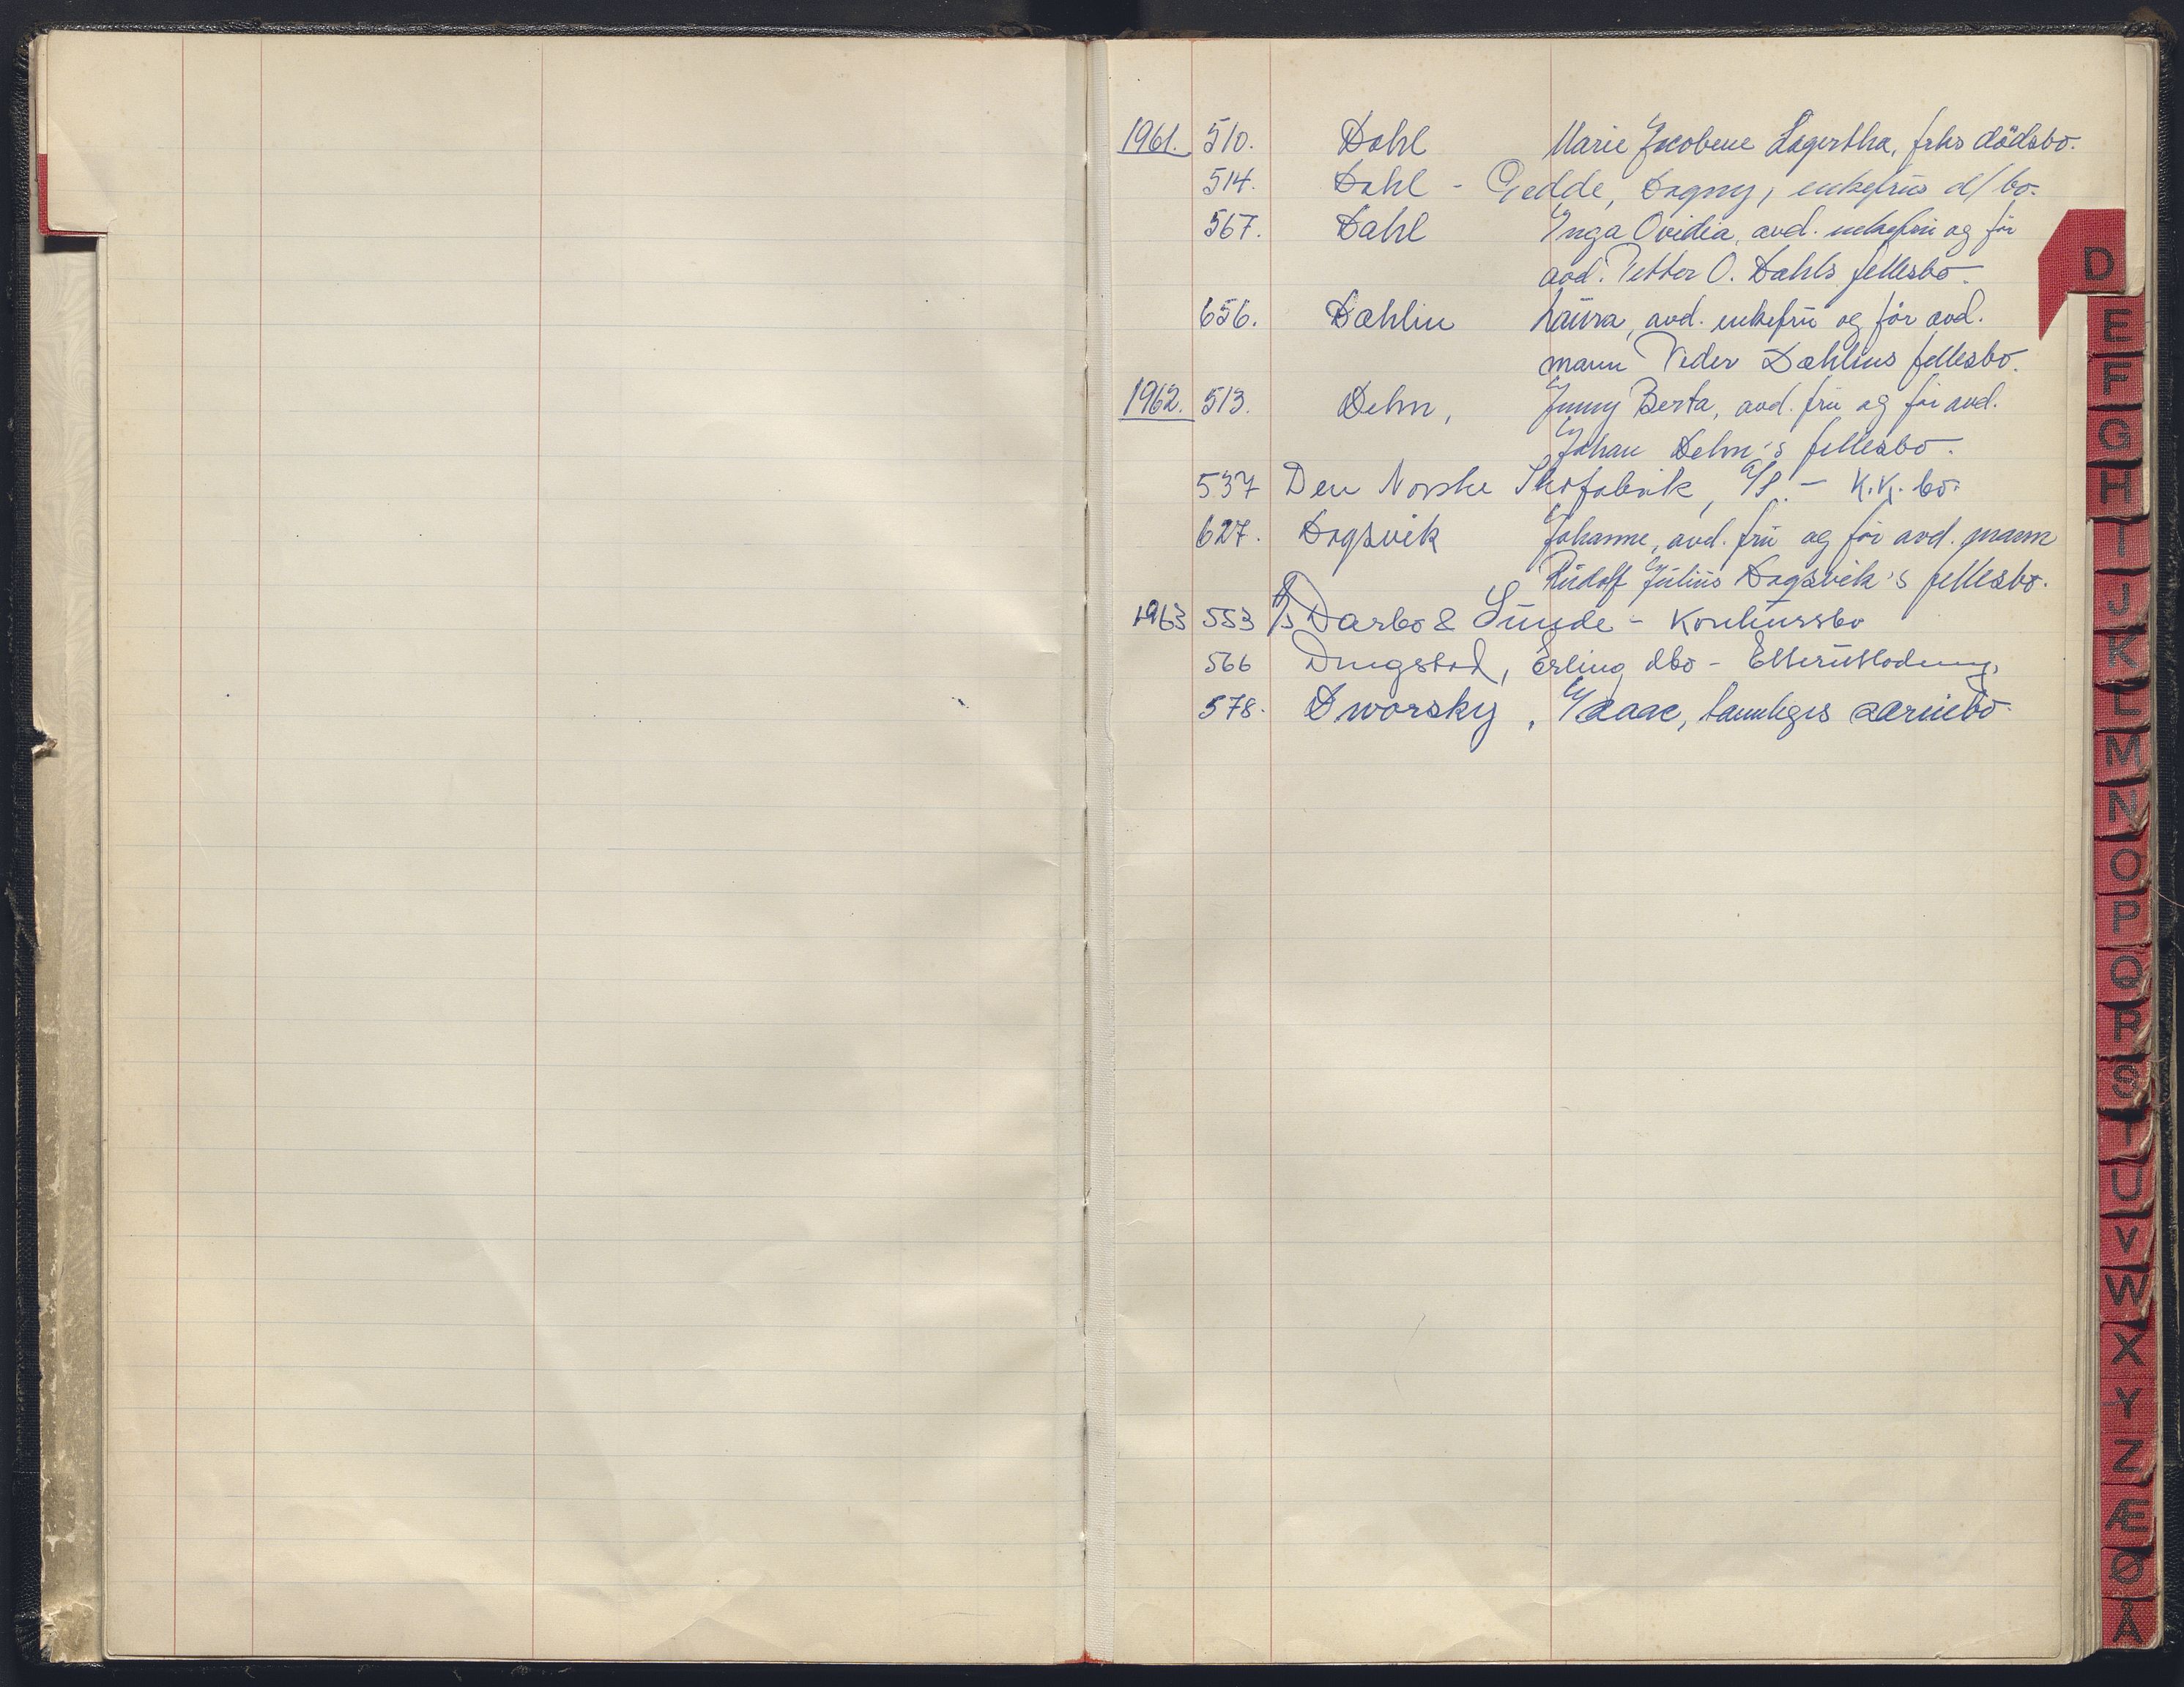 1961. 510. Dahl Marie Jacobene Lagertha, frks dödsbo.
514. Dahl - Gedde, Dagny, enkefrus d/bo.
567. Dahl Inga Ovidia, avd. enkefru og før
avd. Petter O. Dahls fellesbo.
656. Dahlin Laura, avd. enkefru og før avd.
mann Peder Dahlins fellesbo.
1962. 513. Dehn, Jenny Berta, avd. fru og før avd.
Johan Dehn's fellesbo.
537 Den Norske Skofabrik, A/S. - K.K. bo.
627. Dagsvik Johanne, avd. fru og før avd. mann
Rudolf Julius Dagsvik's fellesbo.
1963 553 A/S Darbo & Sunde - Konkursbo
566 Dugstad, Erling dbo - Etterutlodning,
578. Dworsky, Isaac, tannleges særiebo.
D
E
F
G
H
I
J
K
L
M
N
O
P
Q
R
S
T
U
V
W
X
Y
Z
Æ
Ø
Å